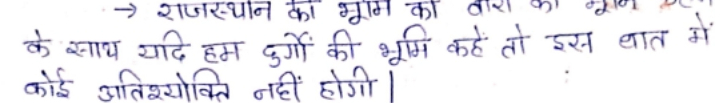 → राजस्थान की भूमि को वीरों की भूमि
के साथ यदि हम दुर्गों की भूमि कहें तो इस बात में
कोई अतिश्योक्ति नहीं होगी |